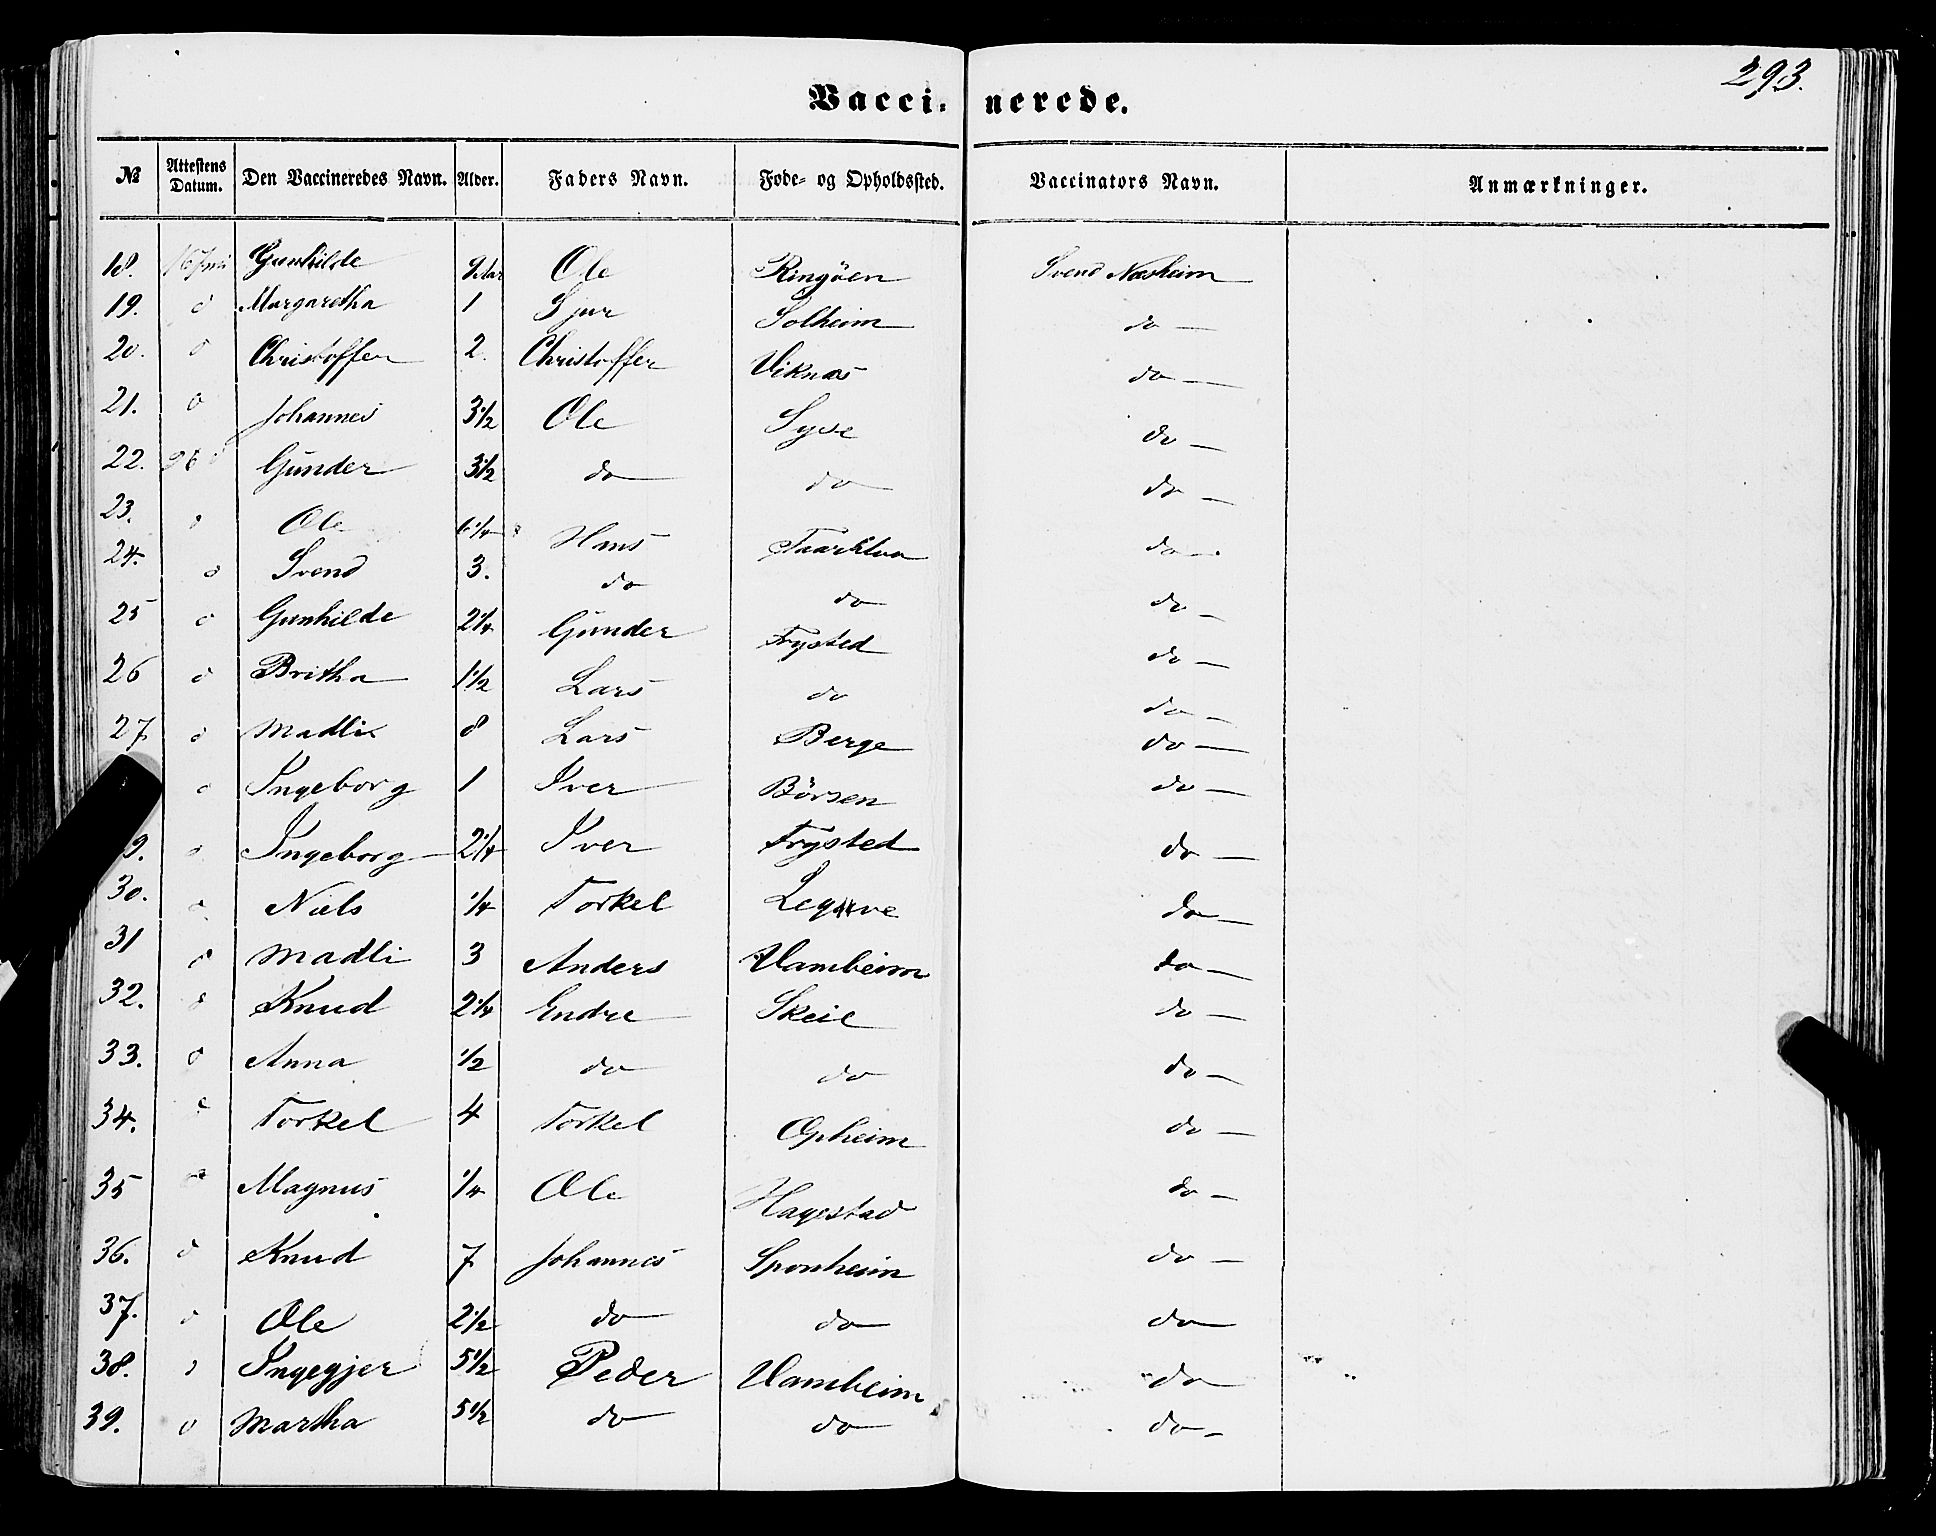 293.
Vaccinerede.
№ Attestens Datum. Den Vaccineredes Navn. Alder. Faders Navn. Føde- og Opholdssted. Vaccinators Navn. Anmærkninger.
18. 16 Juni Gunhilde Ole Ringöen Svend Næsheim
19. d Margaretha 1 Sjur Solheim do —
20. d Christoffer 2. Christoffer Viknæs do —
21. d Johannes 3 1/2 Ole Syse do —
22. 26 d Gunder 3 1/2 do do do —
23. d Ole 6 1/4 Hans do —
24. d Svend 3. do do do —
25 d Gunhilde 2 1/4 Gunder Trysted do —
26 d Britha 1 1/2 Lars do do —
27 d Madli 8 Lars Berge do —
d Ingeborg 1 Iver Börsen do —
9. d Ingeborg 2 1/4 Iver Trysted do —
30. d Niels 1/4 Torkel do —
31 d Madli 3 Anders Vambeim do —
32. d Knud 2 1/4 Endre Skeie do —
33. d Anna 1/2 do do do —
34. d Torkel 4 Torkel Opheim do —
35 d Magnus 1/4 Ole Hagestad do —
36. d Knud 7 Johannes Sponheim do —
37. d Ole 2 1/2 do do do
38. d Ingegjer 5 1/2 Peder Vambeim do
39. d Martha 5 1/2 do do do -